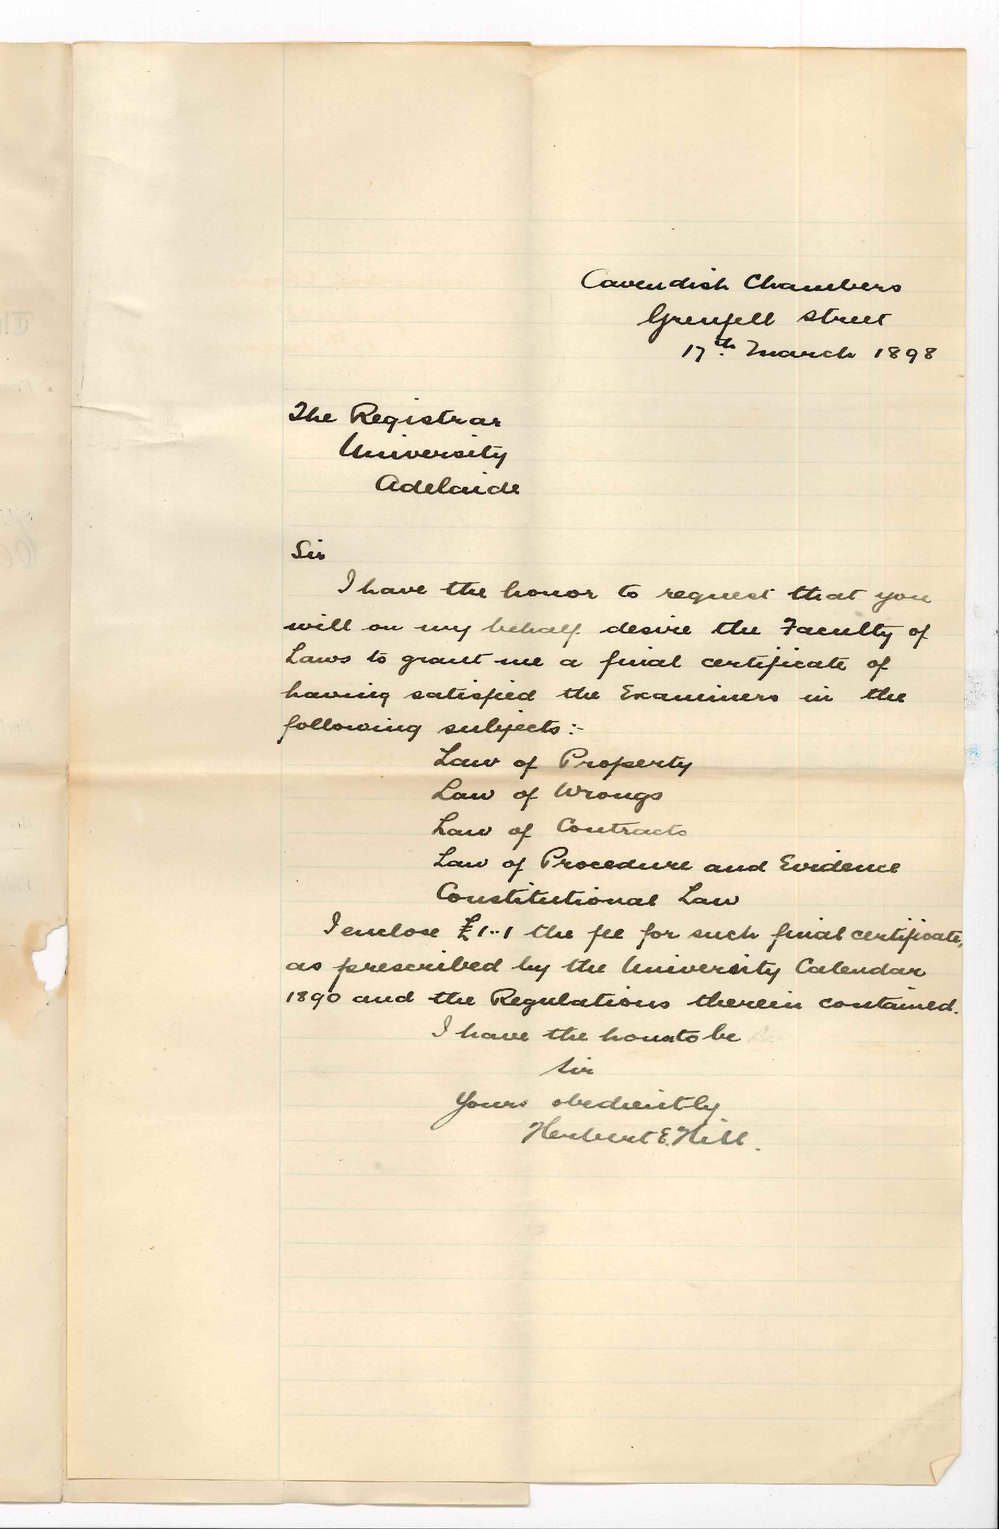 Cavendish Chambers
Grenfell Street
17th March 1898
The Registrar
University
Adelaide
Sir
I have the honor to request that you
will on my behalf desire the Faculty of
Laws to grant me a final certificate of
having satisfied the Examiners in the
following subjects:-
Law of Property
Law of Wrongs
Law of Contracts
Law of Procedure and Evidence
Constitutional Law
I enclose £1..1 the fee for such final certificate,
as prescribed by the University Calendar
1890 and the Regulations therein contained.
I have the honor to be
Sir
Yours obediently
Herbert E. Hill.